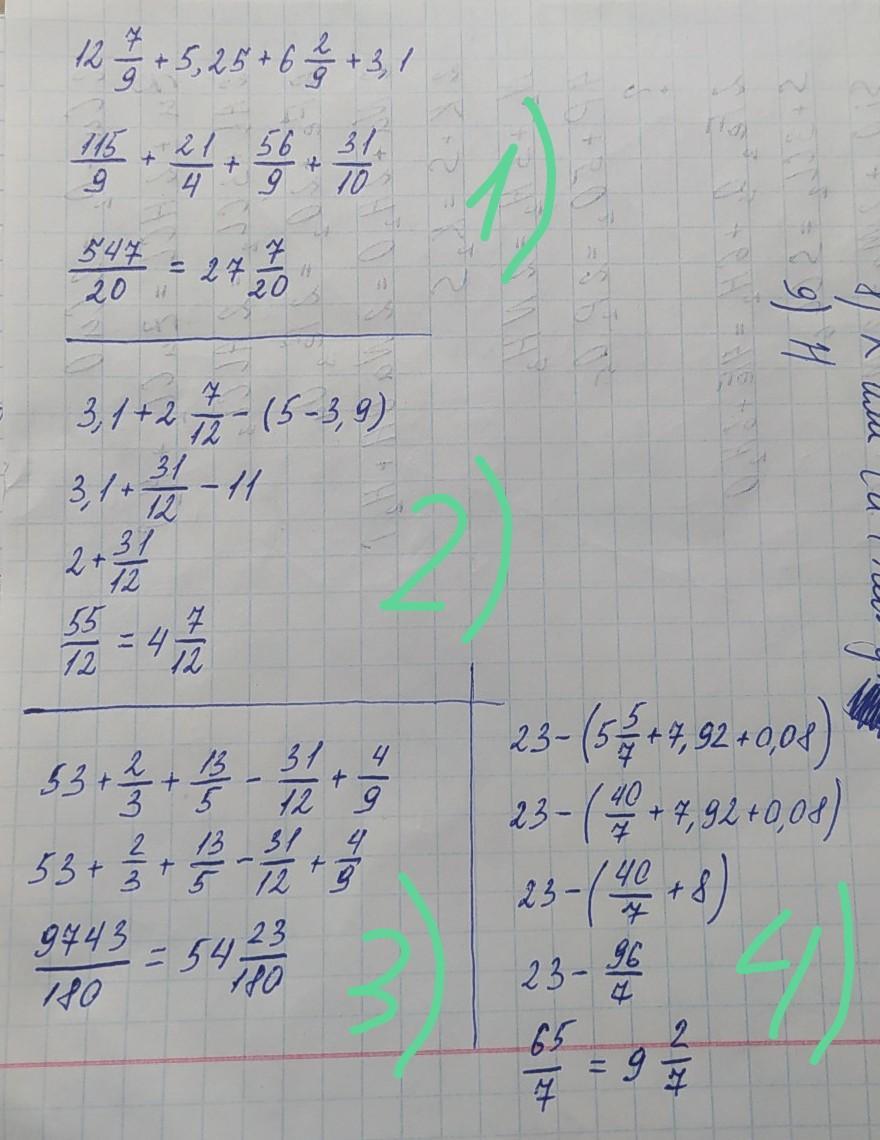 12 7/9 + 5,25 + 6 2/9 + 3,1
115/9 + 21/4 + 56/9 + 31/10
1)
547/20 = 27 7/20
3,1 + 2 7/12 - (5 - 3,9)
3,1 + 31/12 - 11
2 + 31/12
2)
55/12 = 4 7/12
53 + 2/3 + 13/5 - 31/12 + 4/9
53 + 2/3 + 13/5 - 31/12 + 4/9
9743/180 = 54 23/180
3)
23 - (5 5/7 + 7,92 + 0,08)
23 - (40/7 + 7,92 + 0,08)
23 - (40/7 + 8)
23 - 96/7
4)
65/7 = 9 2/7
8) К или
9) Н